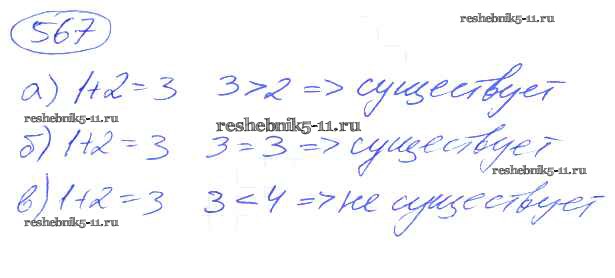 567
reshebnik5-11.ru
а) 1+2=3 3>2 => существует
reshebnik5-11.ru
reshebnik5-11.ru
б) 1+2=3 3=3 => существует
reshebnik5-11.ru
в) 1+2=3 3<4 => не существует
reshebnik5-11.ru